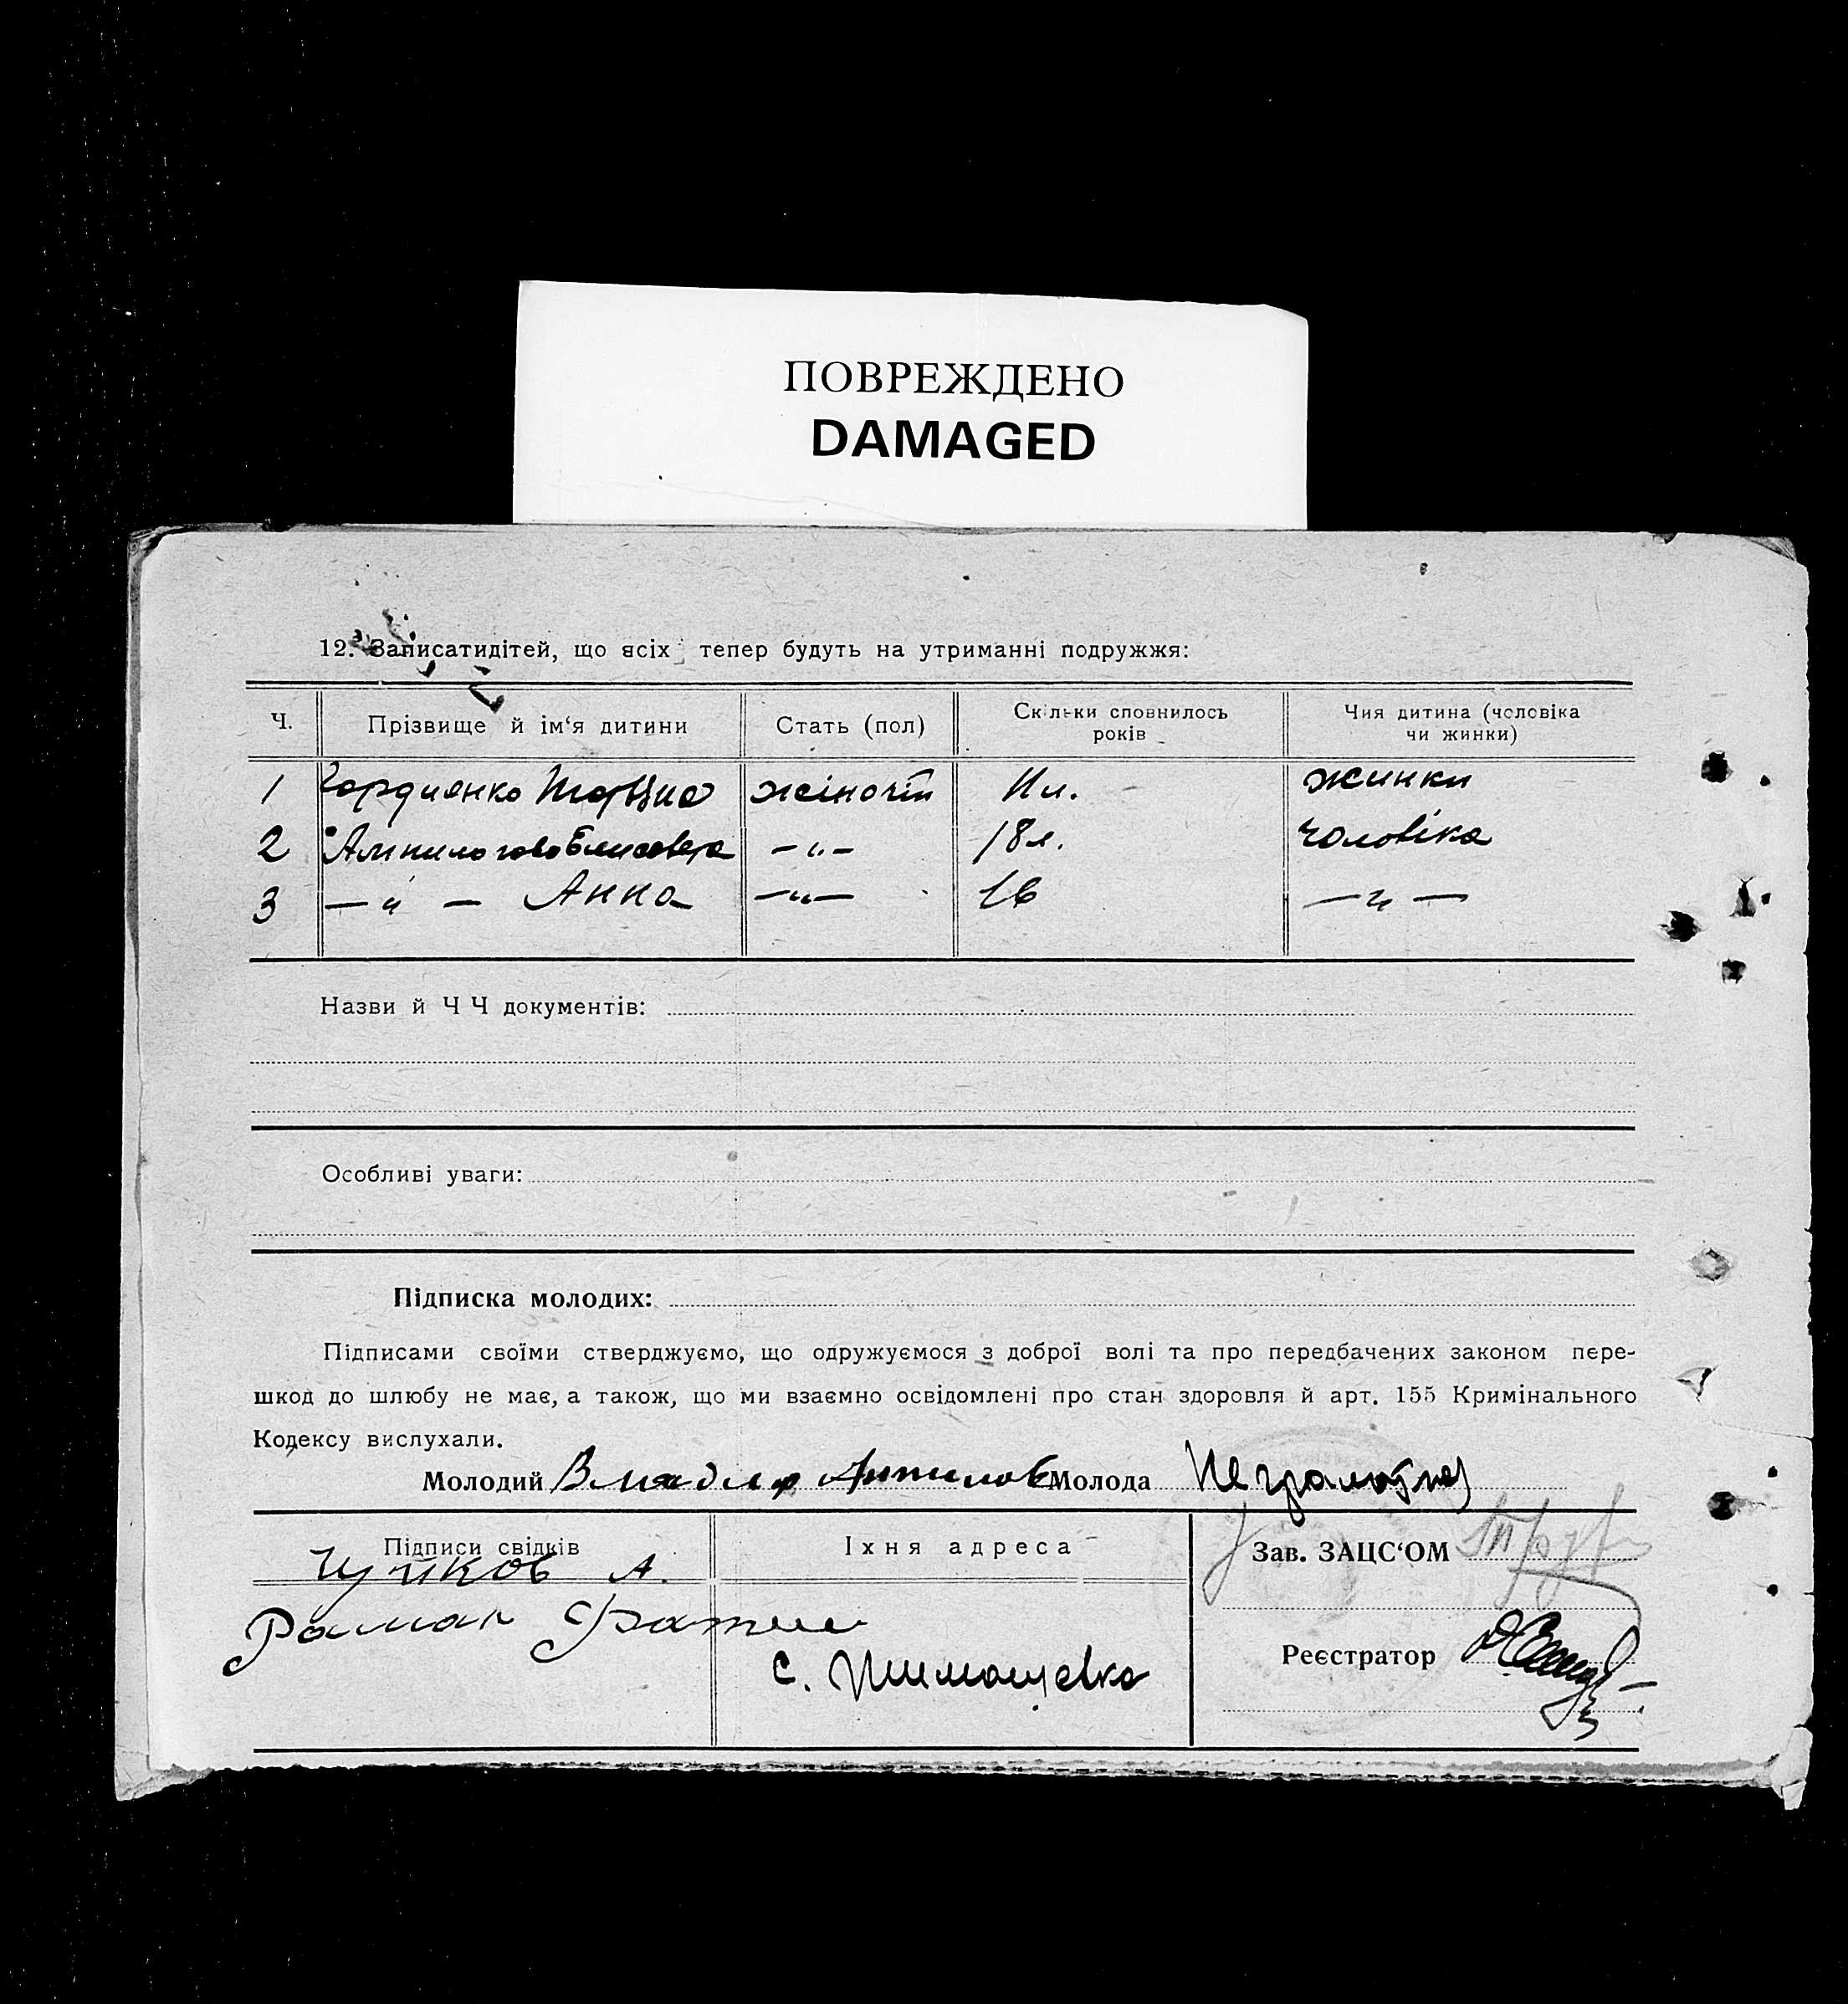 ПОВРЕЖДЕНО
DAMAGED
12. Записатидітей, що всіх тепер будуть на утриманні подружжя:
Ч. Прізвище й ім‘я дитини Стать (пол) Скільки сповнилось років Чия дитина (чоловіка чи жинки)
1 Гордиенко жіноч 11 л. жинки
2 Ампилогова Елисавета —„— 18 л. чоловіка
3 —„— Анна —„— 16 —„—
Назви й Ч Ч документів:
Особливі уваги:
Підписка молодих:
Підписами своїми стверджуємо, що одружуємося з доброї волі та про передбачених законом пере-
шкод до шлюбу не має, а також, що ми взаємно освідомлені про стан здоровля й арт. 155 Кримінального
Кодексу вислухали.
Молодий Молода Неграмотна
Підписи свідків Їхня адреса Зав. ЗАЦС‘ОМ
Чуйков А.
Роман
с. Реєстратор